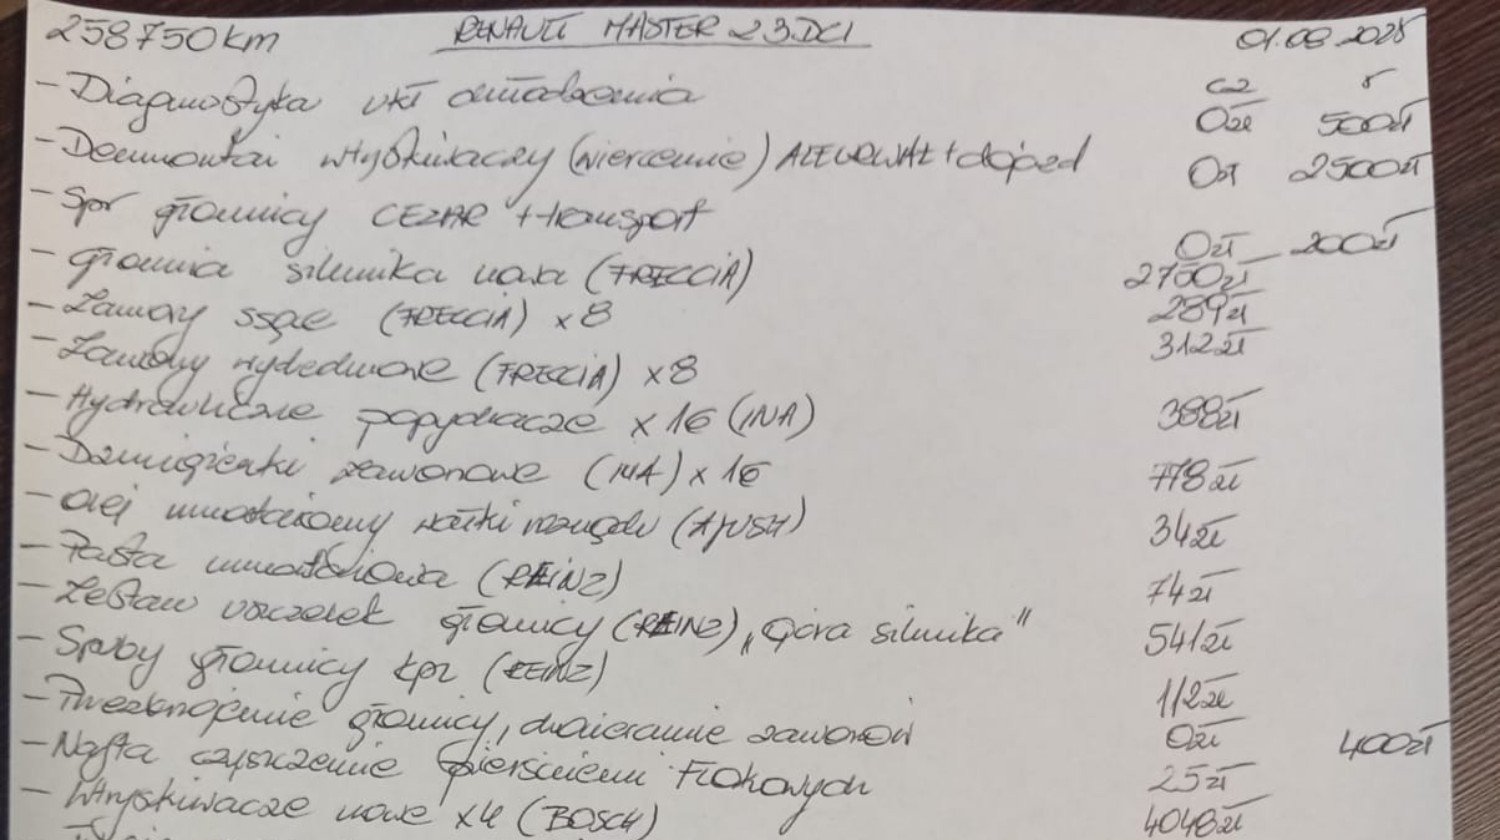 258750km RENAULT MASTER 2.3DCI 01.08.2025
cz r
- Diagnostyka ukł chłodzenia 0zł 500zł
- Demontaż wtryskiwaczy (wiercenie) + dojazd 0zł 2500zł
- Spr głowicy CEZAR + transport 0zł 200zł
- Głowica silnika nowa (FRECCIA) 2750zł
- Zawory ssące (FRECCIA) x8 289zł
- Zawory wydechowe (FRECCIA) x8 312zł
- Hydrauliczne popychacze x16 (INA) 388zł
- Dźwigienki zaworowe (INA) x16 778zł
- Olej wałki rozrządu 34zł
- Pasta (REINZ) 74zł
- Zestaw uszczelek głowicy (REINZ) „Góra silnika" 541zł
- Śruby głowicy kpl (REINZ) 112zł
- Przezbrojenie głowicy, docieranie zaworów 0zł 400zł
- Nafta czyszczenie pierścieni tłokowych 25zł
- Wtryskiwacze nowe x4 (BOSCH) 4048zł